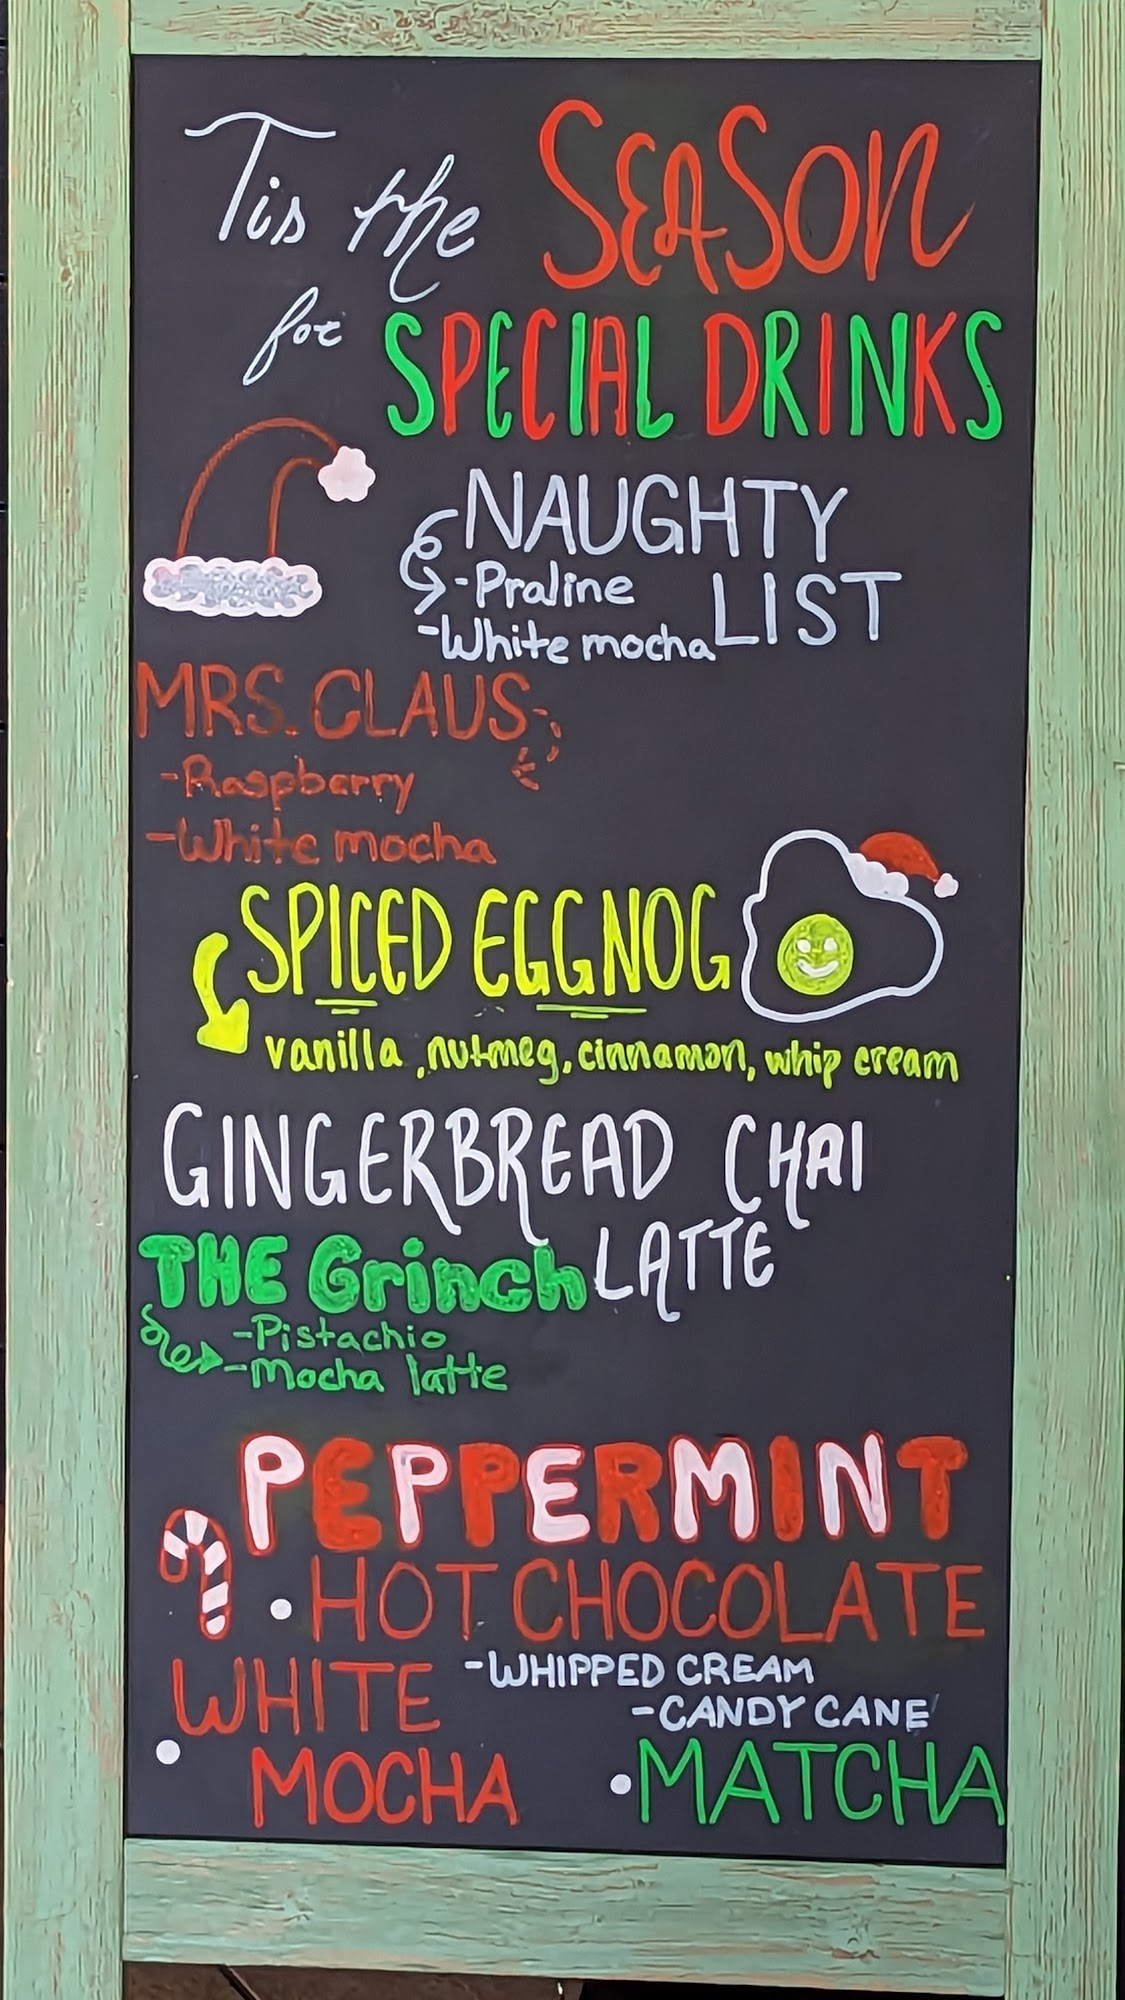 Tis the SEASON
for SPECIAL DRINKS
NAUGHTY
LIST
-Praline
-White mocha
MRS. CLAUS
-Raspberry
-White mocha
SPICED EGGNOG
vanilla, nutmeg, cinnamon, whip cream
GINGERBREAD CHAI
LATTE
THE Grinch
-Pistachio
-Mocha latte
PEPPERMINT
• HOT CHOCOLATE
-WHIPPED CREAM
-CANDY CANE
• WHITE
MOCHA
• MATCHA